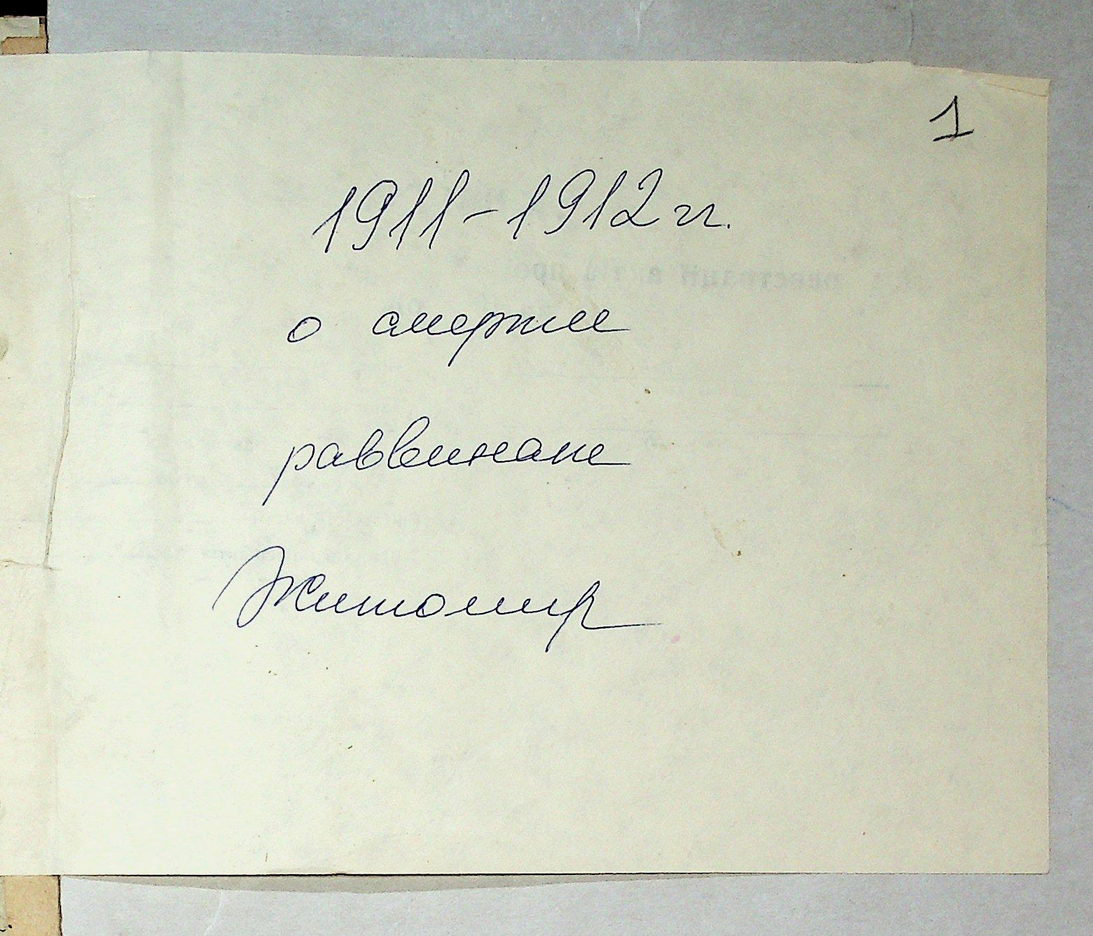 1
1911-1912 гг.
о смерти
раввинат
Житомир